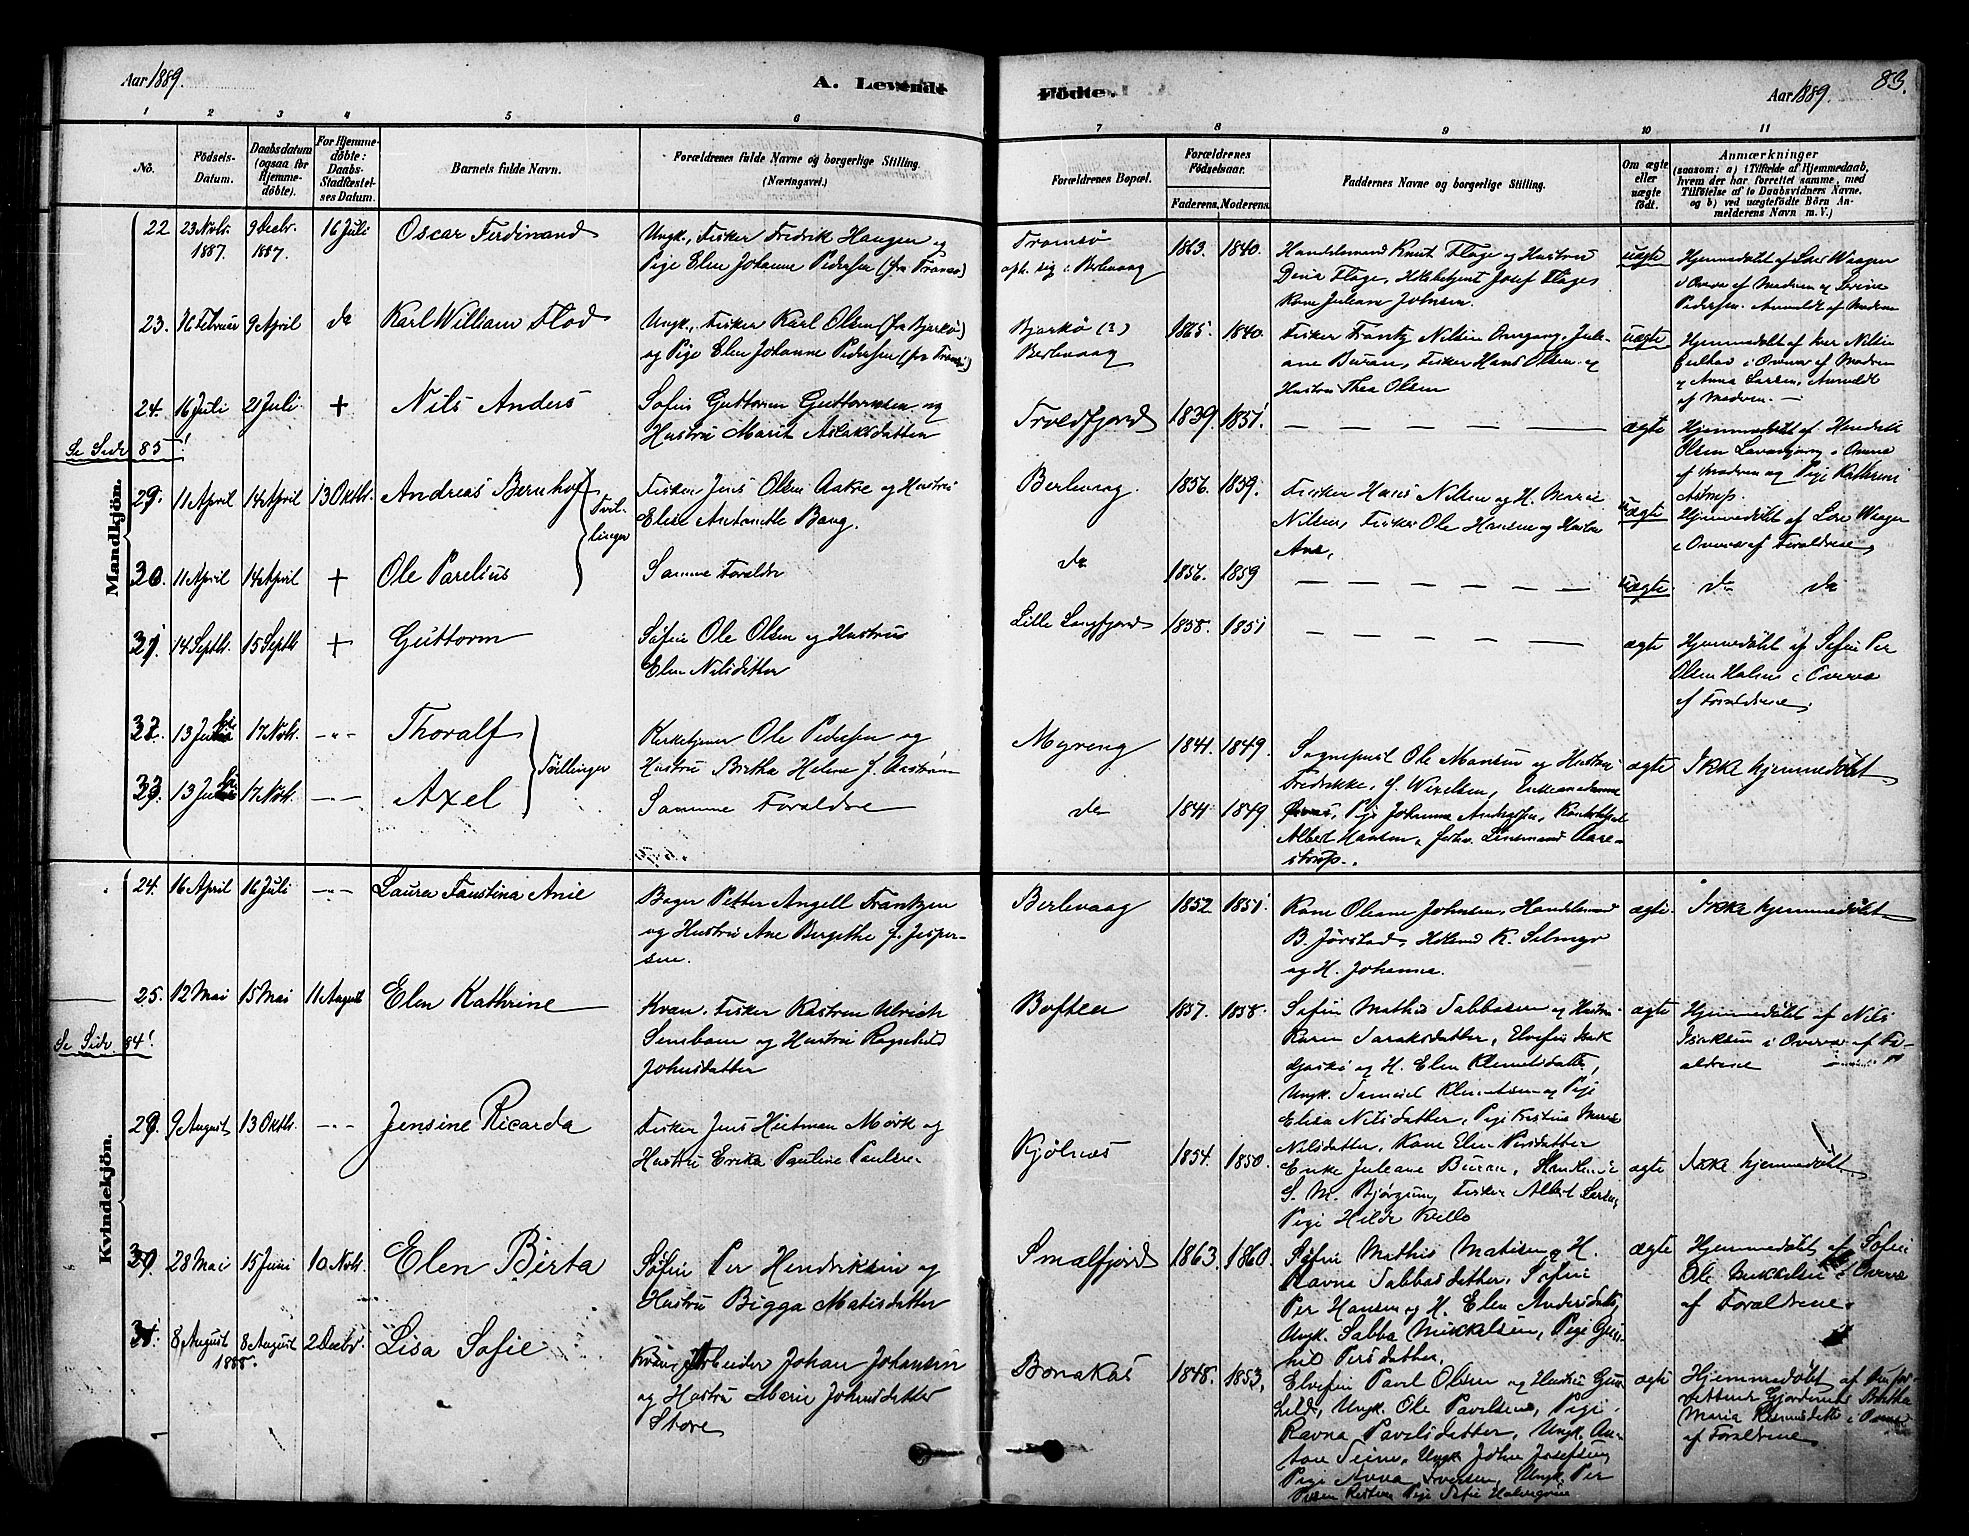 Aar 1889.
A. Levende
Fødte.
Aar 1889.
83.
1 2 3 4 5 6 7 8 9 10 11
No.
Fødsels-Datum.
Daabsdatum (ogsaa for Hjemmedøbte).
For Hjemmedøbte: Daabs-Stadfæstelses Datum.
Barnets fulde Navn.
Forældrenes fulde Navne og borgerlige Stilling.
(Næringsvei.)
Forældrenes Bopæl.
Forældrenes Fødselsaar.
Faderens. Moderens.
Faddernes Navne og borgerlige Stilling.
Om ægte eller uægte født.
Anmærkninger
(saasom: a) i Tilfælde af Hjemmedaab, hvem der har forrettet samme, med Tilføielse af to Daabsvidners Navne, og b) ved uægtefødte Børn Anmelderens Navn m. V.)
Mandkjön.
22 23 Novbr. 1887. 9 Decbr. 1887. 16 Juli Oscar Ferdinand
Ungk., Fisker Fredrik Hansen og
Pige Elen Johanne Pedersen (fra Tromsø)
Tromsø
oph. sig i Berlevaag
1863. 1840.
Handelsmand Knut Flage og Hustru
Dina Flage, Josef Flages
Kone Juliane Johnsen.
uægte
Hjemmedøbt af Lars Waagen
i Overv. af Modren og
Pedersen. Anmeldt af Modren
23. 16 Februar 9 April do Karl William Flod
Ungk., Fisker Karl Olsen (fra Bjarkø)
og Pige Elen Johanne Pedersen (fra Tromsø)
Bjarkø (?)
Berlevaag
1865. 1840.
Fisker Frantz Nilsen Omgang, Juliane Buran, Fisker Hans Olsen og
Hustru Thea Olsen
uægte
Hjemmedøbt af Iver Nilsen
i Overvær af Modren
og Anna Larsen, Anmeldt
af Modren. —
24. 16 Juli 21 Juli + Nils Anders
Søfin Guttorm Guttormsen og
Hustru Marit Aslaksdatter
Troldfjord 1839. 1851. — — — — — ægte
Hjemmedøbt af Hendrik
Olsen i Overv.
af Modren og Pige Kathrine
Astrup.
Se Side 85!
29. 11 April 14 April 13 Oktbr. Andreas Bernhof
Tvillinger
Fisker Jens Olsen Aakre og Hustru
Elise Antonette Bang.
Berlevaag. 1856. 1859.
Fisker Hans Nilsen og H. Marie
Nilsen, Fisker Ole Hansen og Hustru
Ane.
uægte
Hjemmedøbt af Lars Waagen
i Overv. af Forældrene
30. 11 April 14 April + Ole Parelius
Samme Forældre
do 1856. 1859 — — — — — uægte do do
31. 14 Septbr. 15 Septbr + Guttorm
Søfin Ole Olsen og Hustru
Elen Nilsdatter
Lille Langfjord 1858. 1851 — — — — — ægte
Hjemmedøbt af Søfin Per
Olsen Halsen i Overv.
af Forældrene.
32. 13 Juli 17 Novb. -"- Thoralf
Tvillinger
Kirketjener Ole Pedersen og
Hustru Birtha Helene f. Aastrøm
Myreng 1841. 1849.
Sogneprest Ole Mansen og Hustru
Fredrikke f. Wexelsen, Enkeanna
Pige Johanna Andersen, Kontorist
Albert Hansen, Lensmand Aarestrup.
ægte Ikke hjemmedøbt
33. 13 Juli 17 Novb. -- Axel
Samme Forældre
do 1841 1849.
Kvindekjön.
24. 16 April 16 Juli -"- Laura Faustina Anie
Bager Petter Angell Frantzen
og Hustru Ane Bergithe f. Jespersen.
Berlevaag 1852 1851
Kone Oleane Johnsen, Handelsmand
B. Jørstad, K. Selmyr
og H. Johanna.
ægte. Ikke hjemmedøbt
25. 12 Mai 15 Mai 11 August Elen Kathrine
Kvæn. Fisker Karsten Ulrich
Simbom og Hustru Ragnhild
Johnsdatter
Boftsa 1857. 1858.
Søfin Mathis Sabbasen og Hustru
Karen Saraksdatter, Elvefin Isak
og H. Elen Klemetsdatter,
Ungk. Samuel Klemetsen og Pige
Elisa Nilsdatter, Pige Kristine Marie
Nilsdatter, Kone Elen Persdatter
ægte
Hjemmedøbt af Nils
Isaksen i Overv. af Forældrene
Se Side 84!
29. 9 August 13 Oktbr. -"- Jensine Ricarda
Fisker Jens Heitman Mørk og
Hustru Erika Pauline Paulsen.
Kjølnes 1854. 1850.
Enke Juleane Buran,
S. M. Bjørgum, Fisker Albert Larsen,
Pige Hilde Kvello
ægte Ikke hjemmedøbt
30. 28 Mai 15 Juni 10 Novb. Elen Birta
Søfin Per Hendriksen og
Hustru Bigga Matisdatter
Smalfjord 1863. 1860.
Søfin Mathis Matisen og H.
Ravna Sabbasdatter, Søfin
Per Hansen og H. Elen Andersdatter,
Ungk. Sabba Mikkelsen, Pige Gunhild Persdatter.
ægte
Hjemmedøbt af Søfin
Ole Mikkelsen i Overv.
af Forældrene.
31. 8 August 1888. 8 August 2 Decbr. Lisa Sofie
Kvæn, Arbeider Johan Johansen
og Hustru Marie Johnsdatter
Store
Bonakas 1848. 1853.
Elvefin Pavel Olsen og Hustru Gunhild, Ungk. Ole Pavelsen, Pige
Ravna Pavelsdatter, Ungk. Anton Ungk. John Josefsen,
Pige Anna Iversen, Ungk. Per
ægte
Hjemmedøbt af
Gjordemor Birtha
Maria Rasmusdatter i Overv.
af Forældrene